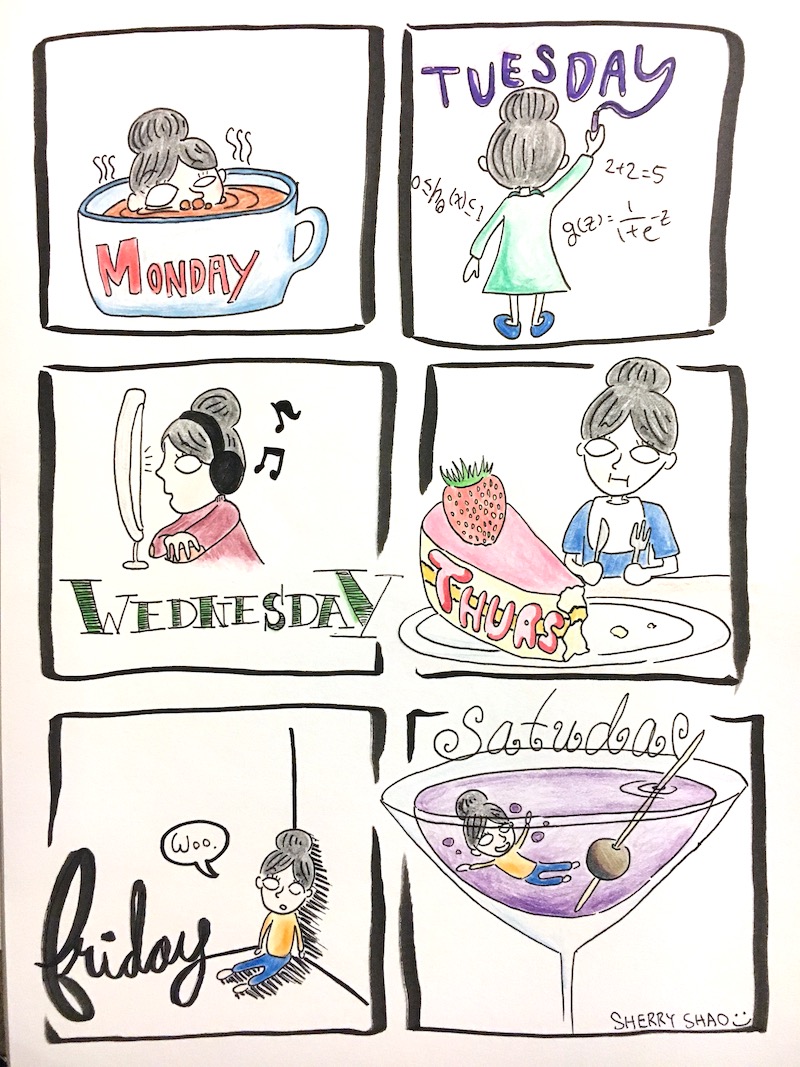 MONDAY
TUESDAY
0≤hθ(x)≤1
2+2=5
g(z)=1/1+e^-z
WEDNESDAY
THURS
Woo.
friday
Saturday
SHERRY SHAO